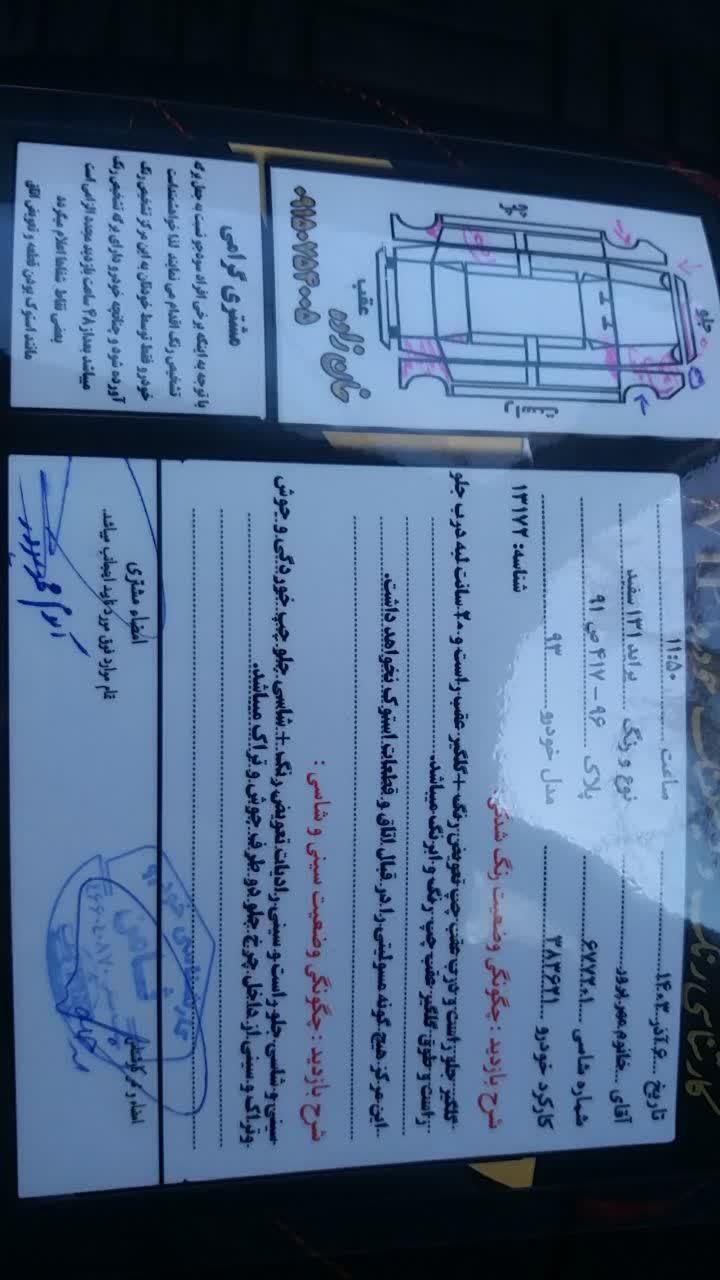 کارشناسی رنگ
تاریخ ۶ آذر ۱۴۰۳ ساعت ۱۱:۵۰
آقای خانوم مهرپرور نوع و رنگ پراید ۱۳۱ سفید
شماره شاسی ۶۷۷۲۰۱ پلاک ۹۶ - ۴۱۷ ص ۹۱
کارکرد خودرو ۳۸۳۶۲۱ مدل خودرو ۹۳
شناسه: ۱۳۱۷۲
شرح بازدید : چگونگی وضعیت رنگ شدگی
گلگیر جلو راست و درب عقب چپ تعویض رنگ + گلگیر عقب راست و ۲۰ سانت لبه درب جلو
راست و طوق گلگیر عقب چپ رنگ و ابرنگ میباشد.
این مرکز هیچ گونه مسولیتی را در قبال اتاق و قطعات استوک نخواهد داشت.
شرح بازدید : چگونگی وضعیت سینی و شاسی :
سینی و شاسی جلو راست و سینی رادیات تعویض رنگ + شاسی جلو چپ خوردگی و جوش
و تراک و سینی از داخل چرخ جلو دو طرف جوش و تراک میباشد.
امضاء و مهر کارشناس
امضاء مشتری
تمام موارد فوق مورد تایید اینجانب میباشد.
جلو
چپ
راست
عقب
خان زاده
۰۹۱۵۰۷۵۴۰۰۵
مشتری گرامی
با توجه به اینکه برخی افراد سودجو نسبت به جعل برگه
تشخیص رنگ اقدام می نمایند لذا خواهشمنداست
خودرو فقط توسط خودتان به این مرکز تشخیص رنگ
آورده شود و چنانچه خودرو دارای برگه تشخیص رنگ
میباشد بعد از ۴۸ ساعت بازدید مجدد الزامی است
بعضی نقاط شفاها اعلام میگردد
مانند استوک بودن قطعه و تعویض اتاق